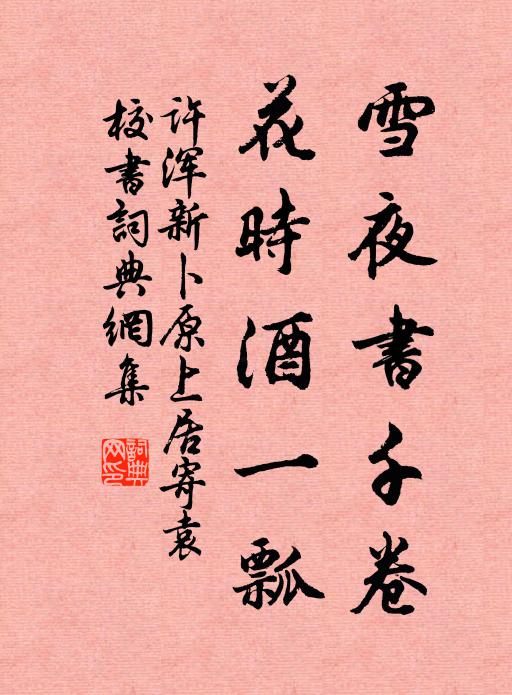 雪夜書千卷
花時酒一瓢
许浑新卜原上居寄袁
校書詞典網集
詞典網印